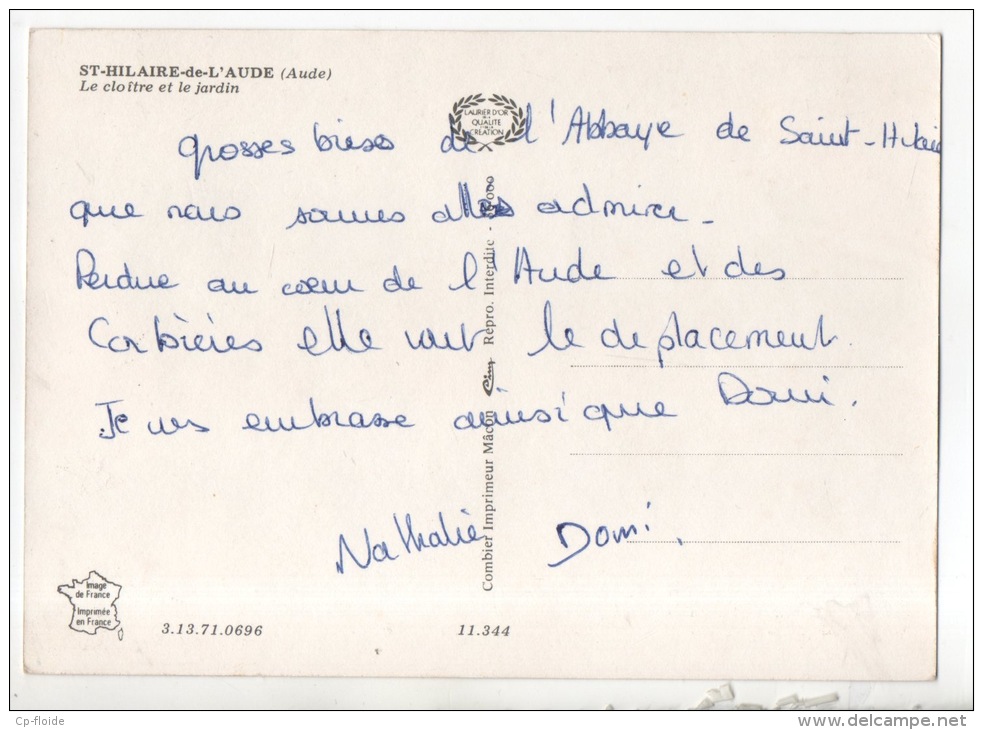 ST-HILAIRE-de-L'AUDE (Aude)
Le cloître et le jardin
LAURIER D'OR
DE LA
QUALITE
CREATION
grosses bises de l'Abbaye de Saint-Hilaire
que nous sommes allés admirer -
Perdue au cœur de l'Aude et des
Corbières elle vaut le deplacement.
Je vs embrasse ainsi que Domi.
Nathalie Domi.
Combier Imprimeur Mâcon Cim Repro. Interdite -
Image
de France
Imprimée
en France
3.13.71.0696
11.344
Cp-floide
www.delcampe.net